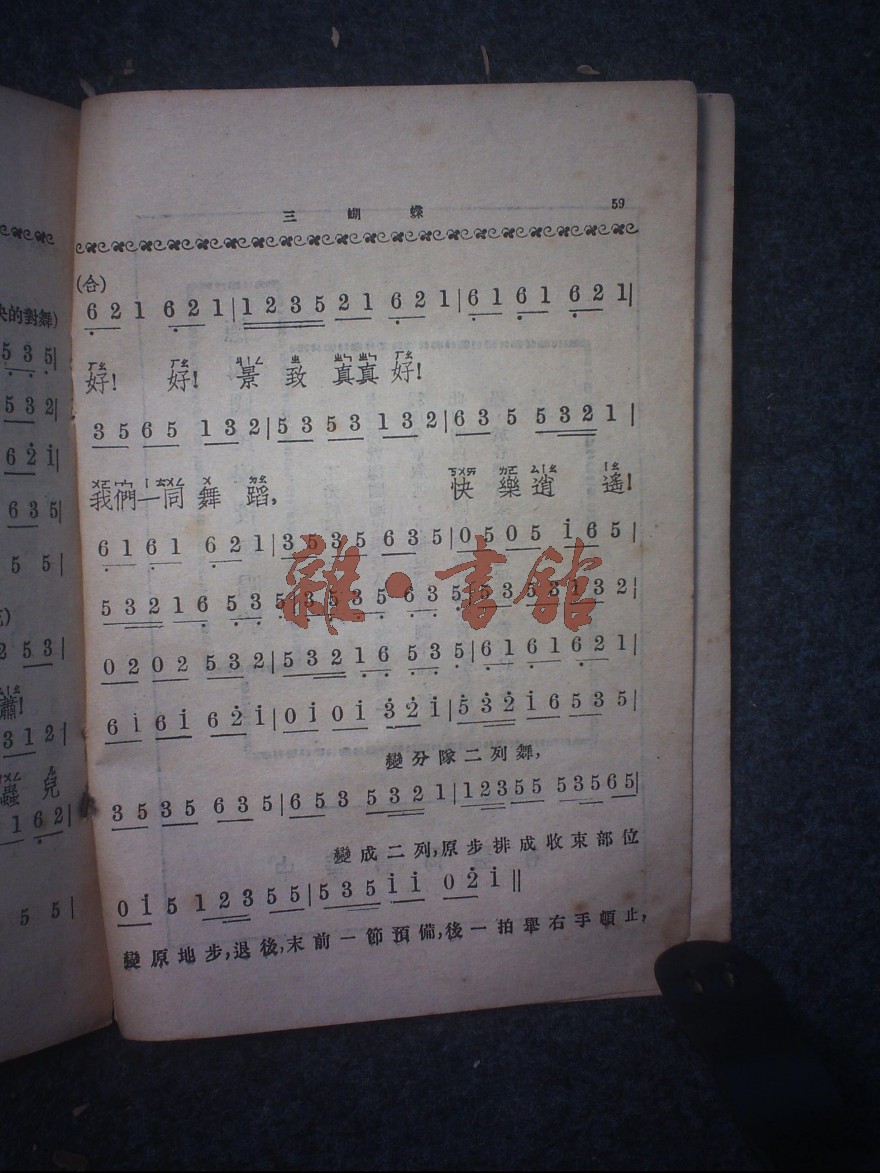 三蝴蝶 59
(合)
6 2 1 6 2 1 | 1 2 3 5 2 1 6 2 1 | 6 1 6 1 6 2 1 |
好! 好! 景致真真好!
3 5 6 5 1 3 2 | 5 3 5 3 1 3 2 | 6 3 5 5 3 2 1 |
我們一同舞蹈, 快樂逍遙!
6 1 6 1 6 2 1 | 3 5 3 5 6 3 5 | 0 5 0 5 i 6 5 |
5 3 2 1 6 5 3 5 | 3 5 3 5 6 3 5 | 5 3 5 3 1 3 2 |
0 2 0 2 5 3 2 | 5 3 2 1 6 5 3 5 | 6 1 6 1 6 2 1 |
6 i 6 i 6 2̇ i | 0 i 0 i 3̇ 2̇ i | 5̇ 3̇ 2̇ i 6 5 3 5 |
變分隊二列舞,
3 5 3 5 6 3 5 | 6 5 3 5 3 2 1 | 1 2 3 5 5 5 3 5 6 5 |
變成二列,原步排成收束部位
0 i 5 1 2 3 5 5 | 5 3 5 i i 0 2̇ i ‖
變原地步,退後,末前一節預備,後一拍舉右手頓止,
的對舞)
5 3 5 |
5 3 2 |
6 2̇ i |
6 3 5 |
5 5 |
2 5 3 |
蕭!
3 1 2 |
蟲兒
1 6 2 |
5 5 |
雜·書館